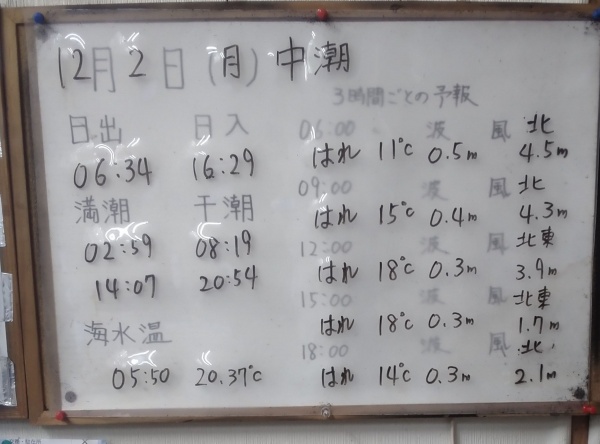 12月2日(月)中潮
3時間ごとの予報
日出 日入
06:34 16:29
満潮 干潮
02:59 08:19
14:07 20:54
海水温
05:50 20.37℃
06:00 波 風 北
はれ 11℃ 0.5m 4.5m
09:00 波 風 北
はれ 15℃ 0.4m 4.3m
12:00 波 風 北東
はれ 18℃ 0.3m 3.9m
15:00 波 風 北東
はれ 18℃ 0.3m 1.7m
18:00 波 風 北
はれ 14℃ 0.3m 2.1m